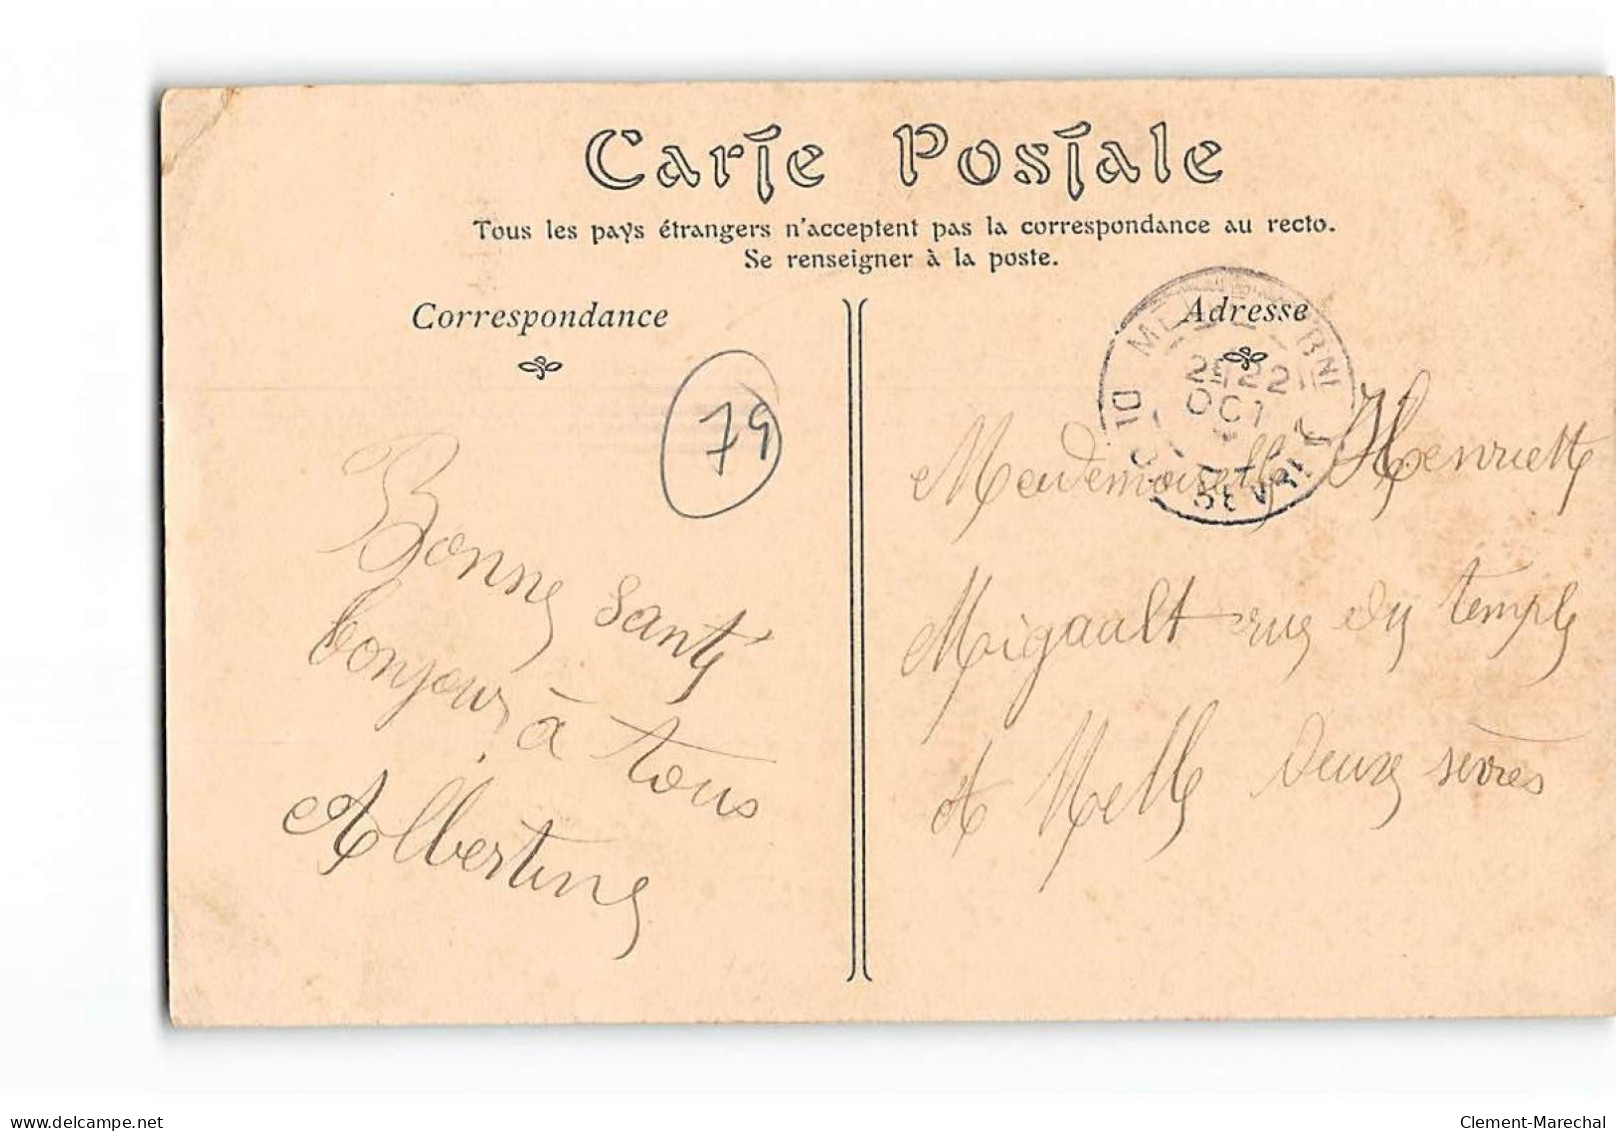 Carte Postale
Tous les pays étrangers n'acceptent pas la correspondance au recto.
Se renseigner à la poste.
Correspondance
Adresse
79
22
OCT
Bonne santé
bonjour à tous
Albertine
Mademoiselle Henriette
Migault rue du temple
A Melle Deux sèvres
www.delcampe.net
Clement-Marechal